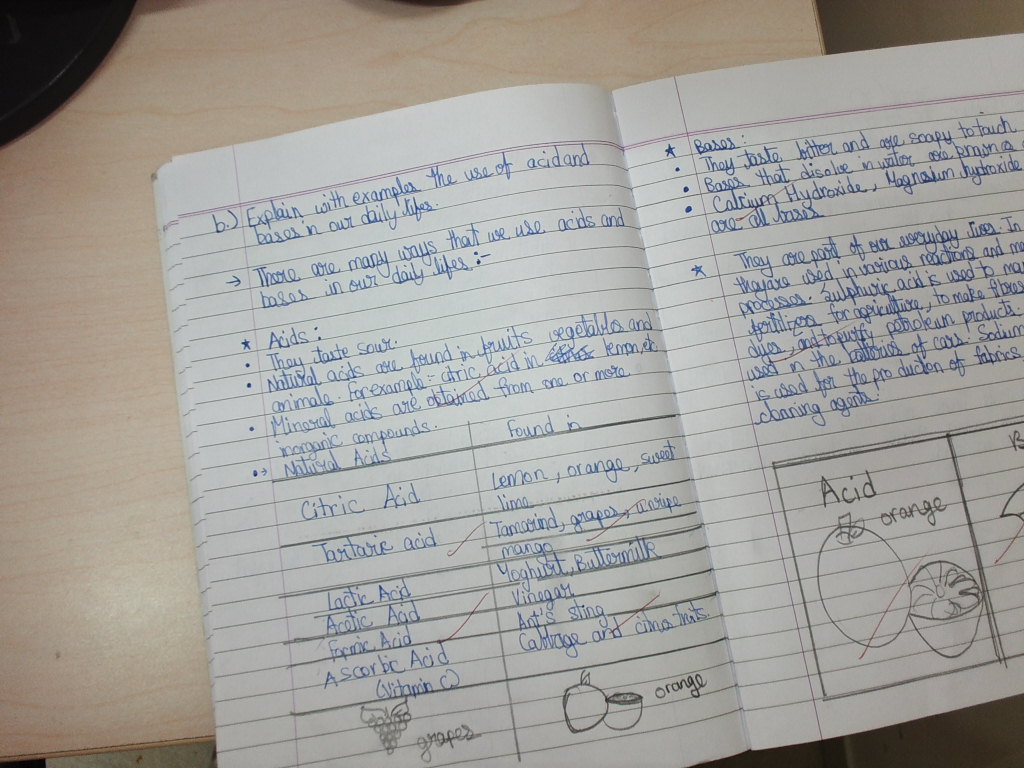 b.) Explain with examples the use of acid and
bases in our daily lifes.
→ There are many ways that we use acids and
bases in our daily lifes :-
* Acids :
• They taste sour.
• Natural acids are found in fruits vegetables and
animals. For example - citric acid in lemon,
• Mineral acids are obtained from one or more
inorganic compounds.
•→ Natural Acids
Found in
Citric Acid
Lemon, orange, sweet
lime
Tartaric acid
Tamarind, grapes, unripe
mango
Lactic Acid
Yoghurt, Buttermilk
Acetic Acid
Vinegar
Formic Acid
Ant's sting
Ascorbic Acid
(Vitamin C)
Cabbage and citrus fruits.
grapes
orange
* Bases :
• They taste bitter and are soapy to touch
• Bases that disolve in water are known
• Calcium Hydroxide, Magnesium hydroxide
are all bases
* They are part of our everyday lives. In
they are used in various reactions and
processes. Sulphuric acid is used to
fertilizers for agriculture, to make fibres
dyes and to purify petroleum products.
used in the batteries of cars. Sodium
is used for the production of fabrics
cleaning agents.
Acid
orange
B